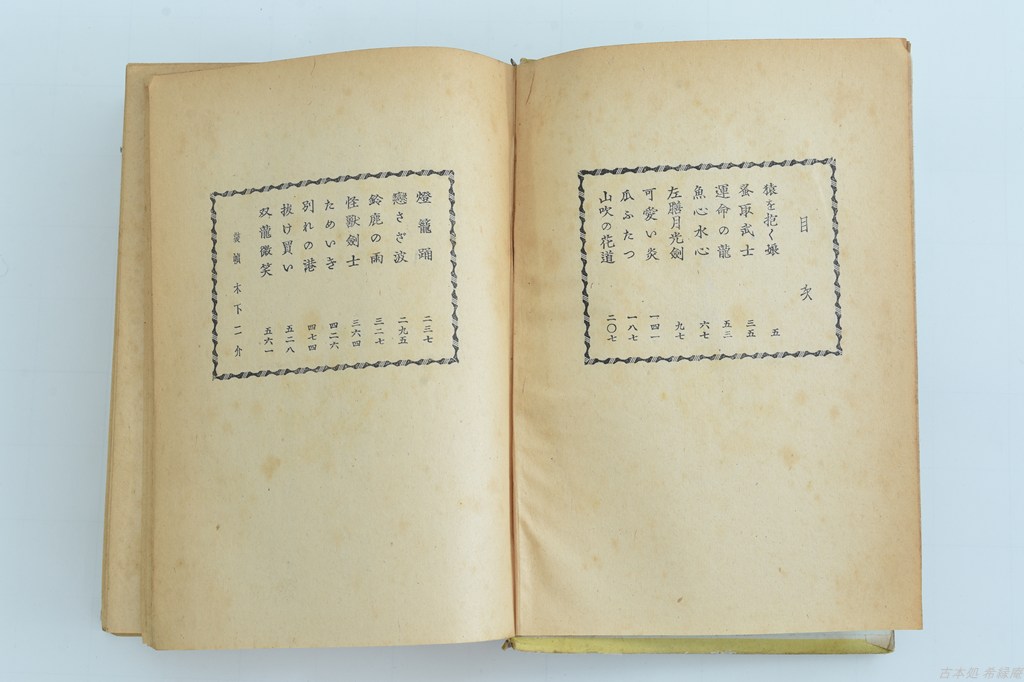 目次
猿を抱く娘 五
蚤取武士 三五
運命の龍 五三
魚心水心 六七
左膳月光劍 九七
可愛い炎 一四一
瓜ふたつ 一八七
山吹の花道 二〇七
燈籠踊 二三七
戀さざ波 二九五
鈴鹿の雨 三二七
怪獸劍士 三六四
ためいき 四二六
別れの港 四七四
拔け買い 五二八
双龍微笑 五六一
裝幀 木下二介
古本処 希縁庵